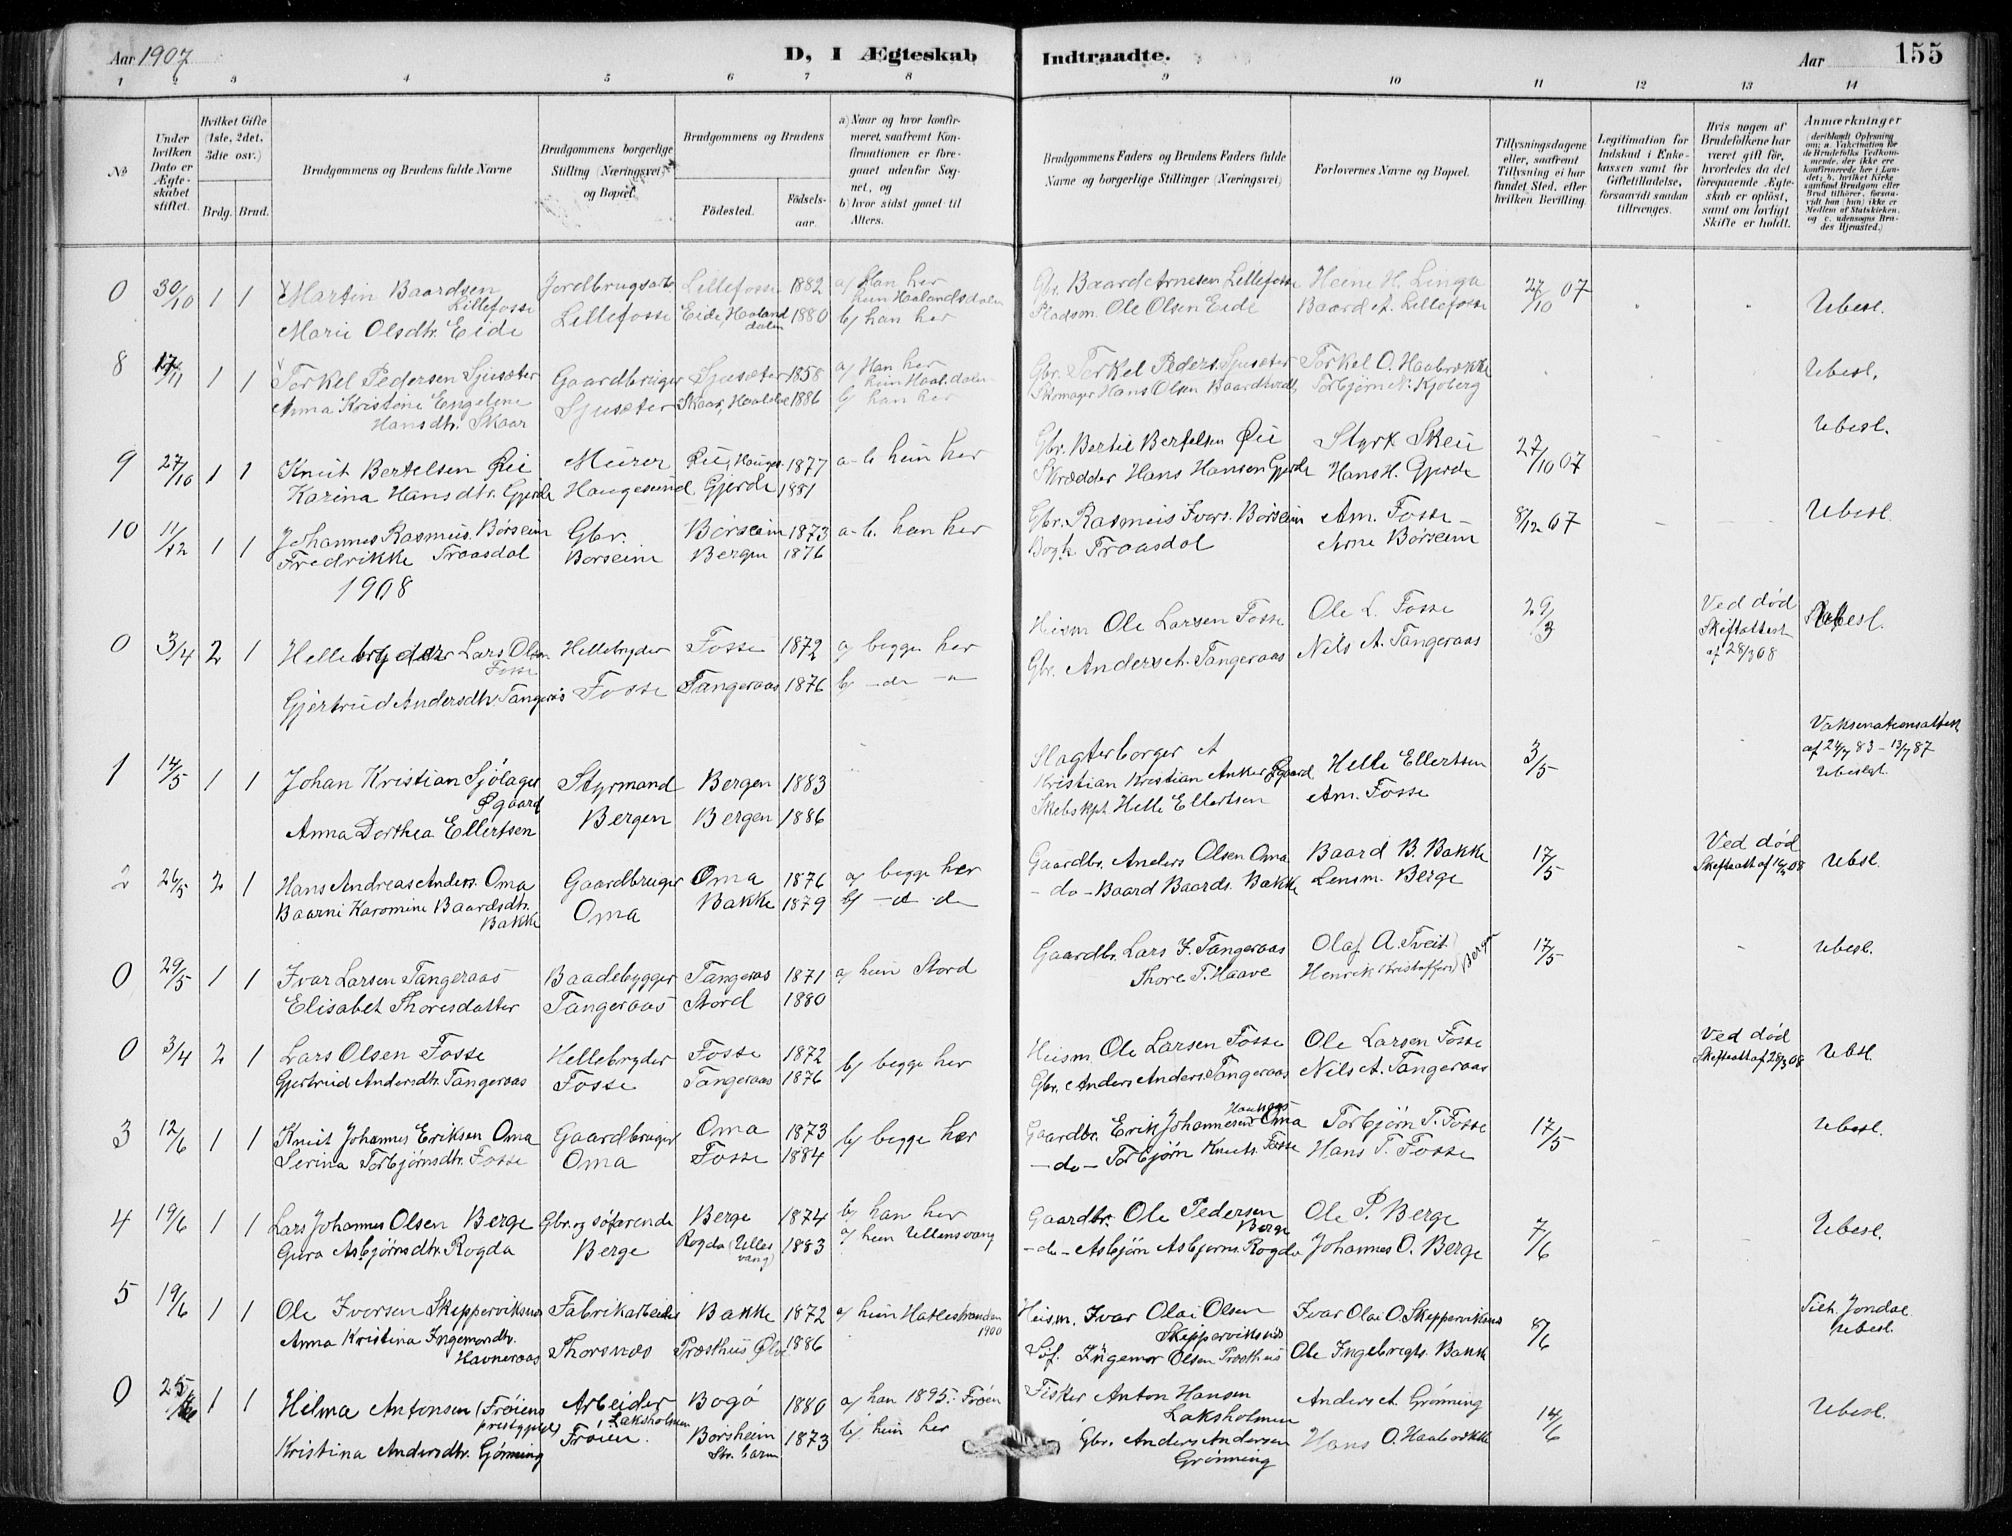 Aar 1907
D, I Ægteskab Indtraadte.
Aar
155
1 2 3 4 5 6 7 8 9 10 11 12 13 14
No.
Under hvilken Dato er Ægteskabet stiftet.
Hvilket Gifte (1ste, 2det, 3die osv.)
Brdg. Brud.
Brudgommens og Brudens fulde Navne
Brudgommens borgerlige Stilling (Næringsvei) og Bopæl.
Brudgommens og Brudens
Födested.
Födselsaar.
a) Naar og hvor konfirmeret, saafremt Konfirmationen er foregaaet udenfor Sognet, og
b) hvor sidst gaaet til Alters.
Brudgommens Faders og Brudens Faders fulde Navne og borgerlige Stillinger (Næringsvei)
Forlovernes Navne og Bopæl.
Tillysningsdagene eller, saafremt Tillysning ei har fundet Sted, efter hvilken Bevilling.
Legitimation for Indskud i Enkekassen samt for Giftetilladelse, forsaavidt saadan tiltrænges.
Hvis nogen af Brudefolkene har været gift för, hvorledes da det foregaaende Ægteskab er oplöst, samt om lovligt Skifte er holdt.
Anmærkninger (deriblandt Oplysning om: a. Vakcination for de Brudefolks Vedkommende, der ikke ere konfirmerede her i Landet; b. hvilket Kirkesamfund Brudgom eller Brud tilhörer, forsaavidt han (hun) ikke er Medlem af Statskirken, og c. udensogns Brudes Hjemsted.)
0 30/10 1 1 Martin Baardsen Lillefosse Jordbrugsarb Lillefosse 1882 a) Han her Gbr. Baard Arnesen Lillefosse Heine H. Linga 27/10 07 Ubesl.
hun Haalandsdalen
Marie Olsdtr. Eide Lillefosse Eide, Haalanddalen 1880 b) han her Pladsm. Ole Olsen Eide Baard A. Lillefosse
8 17/11 1 1 Torkel Pedersen Sjusæter Gaardbruger Sjusæter 1858 a) Han her Gbr. Torkel Peders. Sjusæter Torkel O. Haabrække Ubesl.
hun Haal.dalen
Anna Kristine Engeline Hansdtr. Skaar Sjusæter Skaar, Haaldal 1886 b) han her Skomager Hans Olsen Torbjørn N. Kjoberg
9 27/10 1 1 Knut Bertelsen Øie Murer 1877 a-b. hun her Gbr. Bertel Bertelsen Øie Styrk Skeie 27/10 07 Ubesl.
Karina Hansdtr. Gjerde Haugesund Gjerde 1881 Skrædder Hans Hansen Gjerde Hans H. Gjerde
10 11/12 1 1 Johannes Rasmus. Børseim Gbr. Børseim 1873 a-b. han her Gbr. Rasmus Ivers. Børseim Am. Fosse 8/12 07 Ubesl.
Fredrikke Traasdal Borseim Bergen 1876 Traasdal Arne Børseim
1908
0 3/4 2 1 Hellebryder Lars Olsen Fosse Hellebryder Fosse 1872 a) begge her Husm Ole Larsen Fosse Ole L. Fosse 29/3 Ved død Skifteattest af 28/3 08 Ubesl.
Gjertrud Andersdtr. Tangeras Fosse Tangeraas 1876 b) - do - Gbr. Anders A. Tangeraas Nils A. Tangeraas
1 14/5 1 1 Johan Kristian Sjölager Øgaard Styrmand Bergen 1883 Slagterborger Kristian Kristian Anker Øgaard Helle Ellertsen 3/5 Vaksenationsattest af 24/7 83 - 13/7 87 Ubeslgt.
Anna Dorthea Ellertsen Bergen Bergen 1886 Skibskpt. Helle Ellertsen Am. Fosse
2 26/5 2 1 Hans Andreas Anders. Oma Gaardbruger Oma 1876 a) begge her Gaardbr. Anders Olsen Oma Baard B. Bakke 17/5 Ved død Ubsl.
Baarni Karomine Baardsdtr. Bakke Oma Bakke 1879 b) - do - Baard Baards. Bakke Lensm. Berge
0 29/5 1 1 Ivar Larsen Tangeraas Baadebygger Tangeras 1871 a) hun Stord Gaardbr. Lars I. Tangeraas Olaf A. Tveit 17/5 Ubesl.
Elisabet Thoresdatter Tangeraas Stord 1880 Thore T. Haave Henrik Kristoffers. Bergen
0 3/4 2 1 Lars Olsen Fosse Hellebryder Fosse 1872 b) begge her Husm. Ole Larsen Fosse Ole Larsen Fosse Ved død Skifteatt af 28/3 08 Ubsl.
Gjertrud Andersdtr. Tangeraas Fosse Tangeraas 1876 Gbr. Anders Anders. Tangeraas Nils A. Tangeraas
3 12/6 1 1 Knut Johannes Eriksen Oma Gaardbruger Oma 1873 b) begge her Gaardbr. Erik Johannesen Oma Torbjørn T. Fosse 17/5 Ubesl.
Serina Torbjørnsdtr. Fosse Oma Fosse 1884 - do - Torbjörn Knuts. Fosse Hans T. Fosse
4 19/6 1 1 Lars Johannes Olsen Berge Gbr. og søfarende Berge 1874 b) han her Gaardbr. Ole Pedersen Berge Ole P. Berge 7/6 Ubesl.
Gura Asbjørnsdtr. Rogda Berge Rogda (Ullesvang) 1883 a) hun Ullensvang - do - Asbjørn Asbjørns. Rogda Johannes O. Berge
5 19/6 1 1 Ole Iversen Skepperviksnes Fabrikarbeider Bakke 1872 a) hun Hatlestranden 1900 Husm. Ivar Olai Olsen Skepperviksnes Ivar Olai O. Skepperviksnes 8/6 Jondal Ubesl.
Anna Kristina Ingemorsdtr. Havneraas Thorsnæs Præsthus Ølve 1886 Ingemor Olsen Præsthus Ole Ingebregts. Bakke
0 25/6 1 1 Hilma Antonsen (Frøiens prestegjeld) Arbeider Bogö 1880 a) han 1895. Frøien Fisker Anton Hansen Laksholmen Anders A. Grønning 14/6 Ubesl.
Laksholmen
Kristina Andersdtr. Gjønning Frøien. Borsheim 1873 b) hun her Gbr. Anders Andersen Grønning Hans O. Haabrække